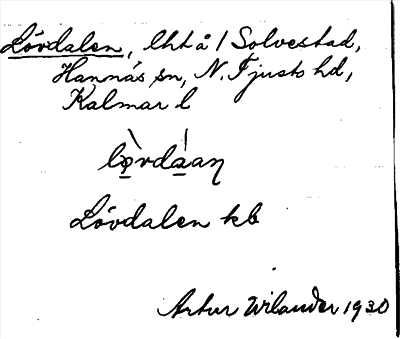 Lövdalen, lht å 1 Solvestad,
Hannäs sn, N. Tjusts hd,
Kalmar l
lø̱̀vdá̱aṇ
Lövdalen kb
Artur Wilander 1930